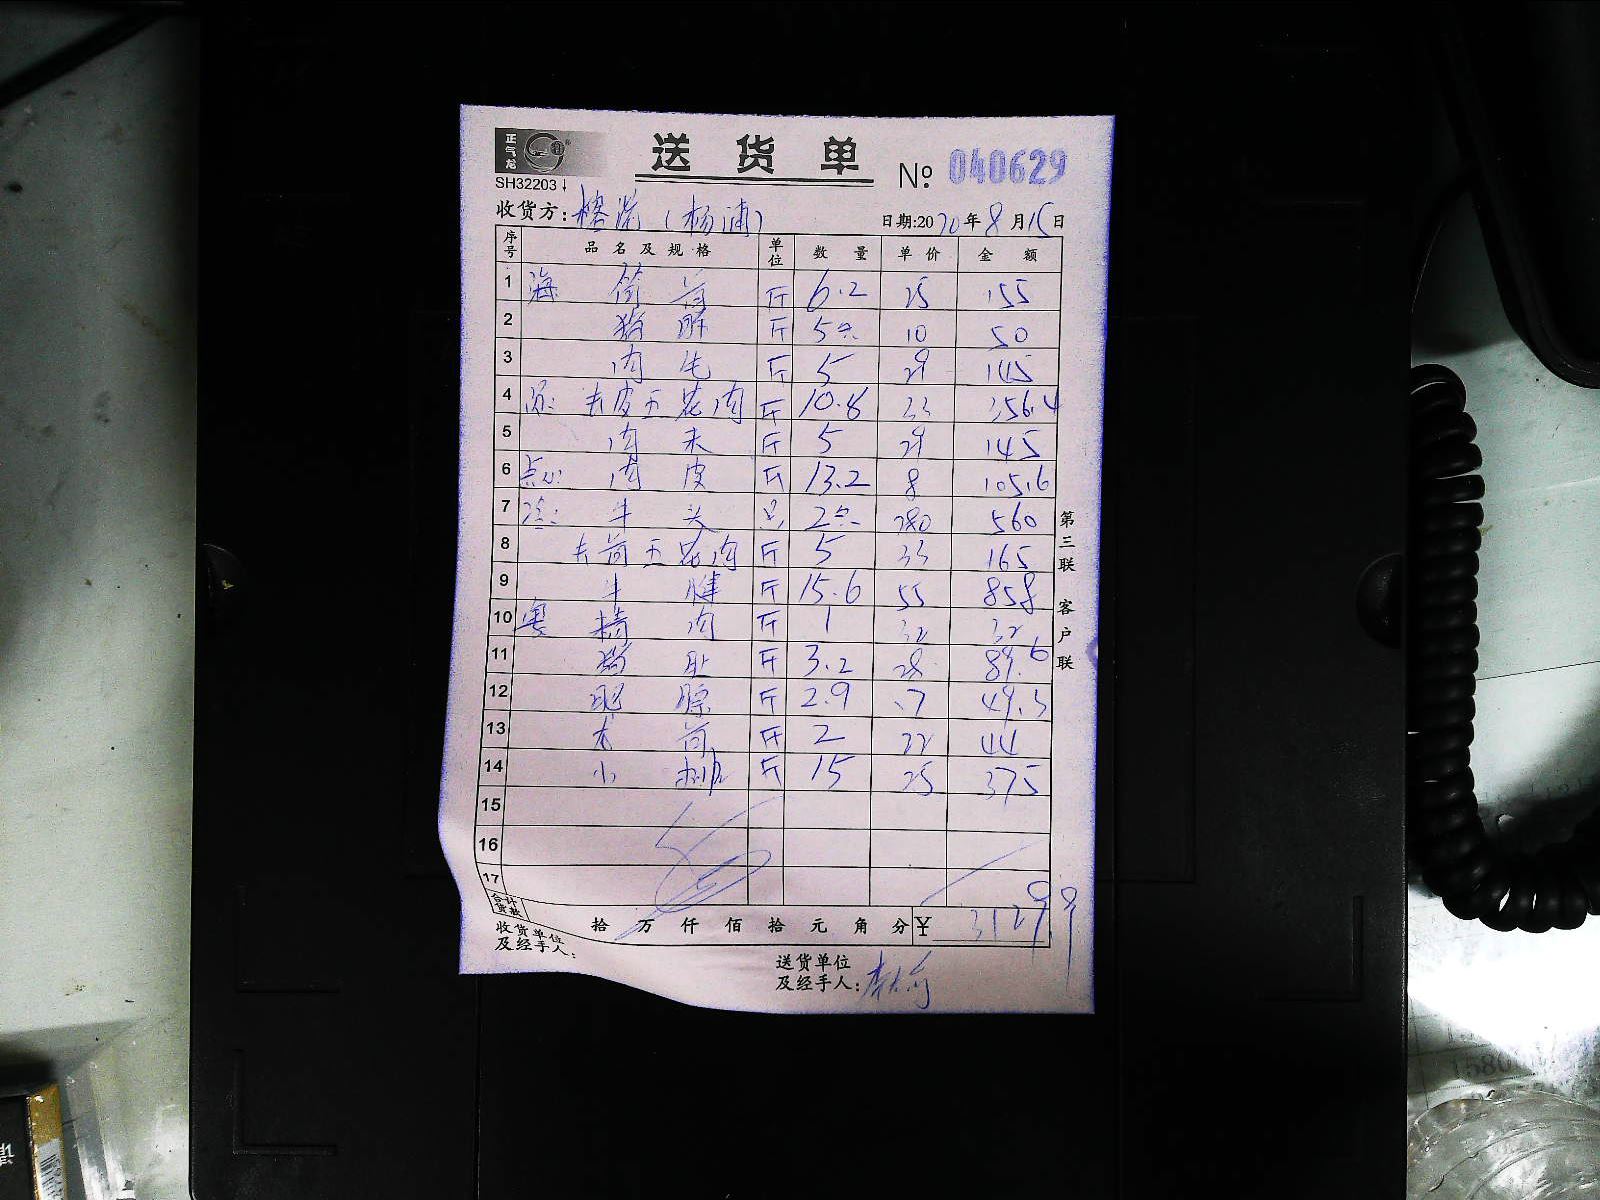 正气龙
送货单
№ 040629
SH32203
收货方: (杨浦) 日期:2020年8月15日
序号 品名及规格 单位 数量 单价 金额
1 海 筒骨 斤 6.2 25 155
2 猪脚 斤 5只 10 50
3 肉 斤 5 29 145
4 去皮五花肉 斤 10.8 33 356.4
5 肉末 斤 5 29 145
6 点心: 肉皮 斤 13.2 8 105.6
7 冷: 牛头 只 2只 280 560
8 去骨五花肉 斤 5 33 165
9 牛腱 斤 15.6 55 858
10 粤 精肉 斤 1 32 32
11 猪肚 斤 3.2 28 89.6
12 肥膘 斤 2.9 17 49.3
13 龙骨 斤 2 22 44
14 小排 斤 15 25 375
15
16
17
合计货款 拾万仟佰拾元角分 ¥ 3129.9
收货单位及经手人:
送货单位及经手人:
第三联 客户联